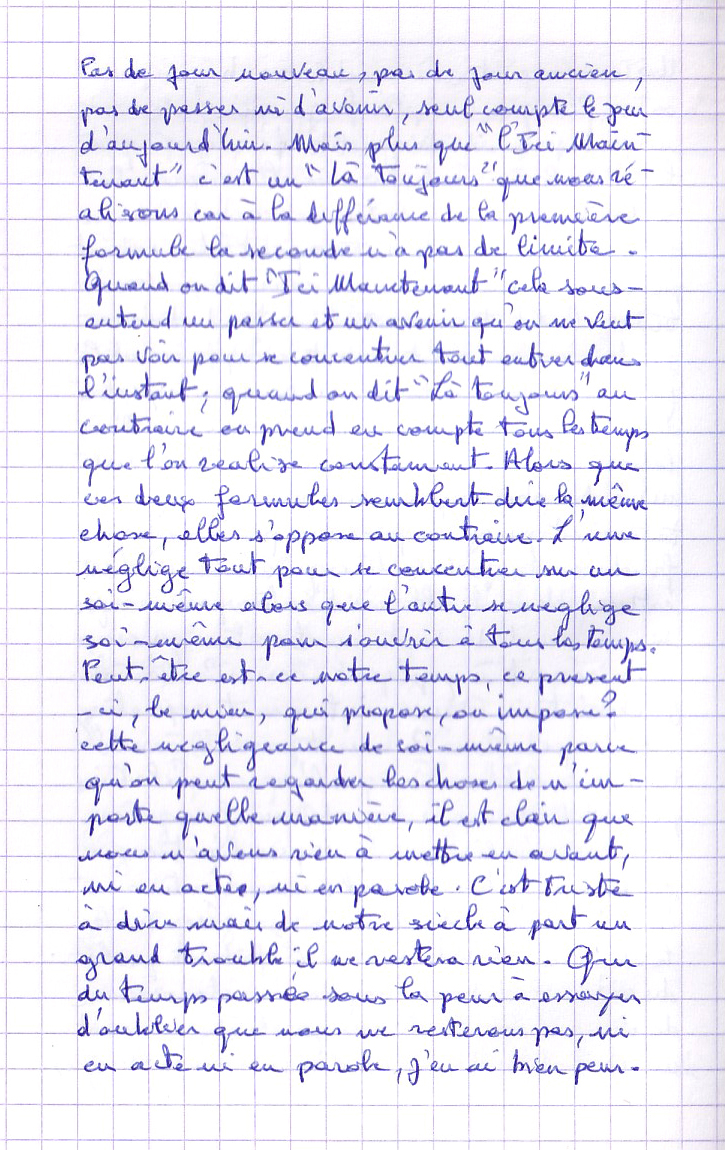 Pas de jour nouveau, pas de jour ancien,
pas de passer ni d'avenir, seul compte le jour
d'aujourd'hui. Mais plus que "l'Ici Main-
tenant" c'est un "Là Toujours" que nous ré-
alisons car à la différence de la première
formule la seconde n'a pas de limite.
Quand on dit "Ici Maintenant" cela sous-
entend un passer et un avenir qu'on ne veut
pas voir pour se concentrer tout entier dans
l'instant; quand on dit "Là toujours" au
contraire on prend en compte tous les temps
que l'on réalise constament. Alors que
ces deux formules semblent dire la même
chose, elles s'oppose au contraire. L'une
néglige tout pour se concentrer sur un
soi-même alors que l'autre se néglige
soi-même pour s'ouvrir à tous les temps.
Peut-être est-ce notre temps, ce present
-ci, le mien, qui propose, ou impose?
cette negligeance de soi-même parce
qu'on peut regarder les choses de n'im-
porte quelle manière, il est clair que
nous n'avons rien à mettre en avant,
ni en actes, ni en parole. C'est triste
à dire mais de notre siècle à part un
grand trouble il ne restera rien. Que
du temps passés sous la peur à essayer
d'oublier que nous ne resterons pas, ni
en acte ni en parole, j'en ai bien peur.